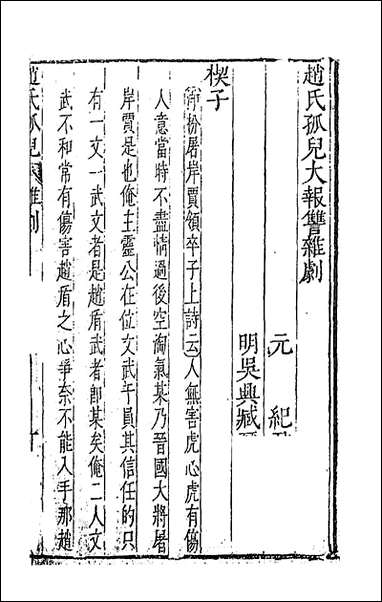 趙氏孤兒大報讐雜劇
元　紀
明吳興臧
楔子
淨扮屠岸賈領卒子上詩云人無害虎心虎有傷
人意當時不盡情過後空淘氣某乃晉國大將屠
岸賈是也俺主靈公在位文武千員其信任的只
有一文一武文者是趙盾武者卽某矣俺二人文
武不和常有傷害趙盾之心爭奈不能入手那趙
趙氏孤兒　雜劇